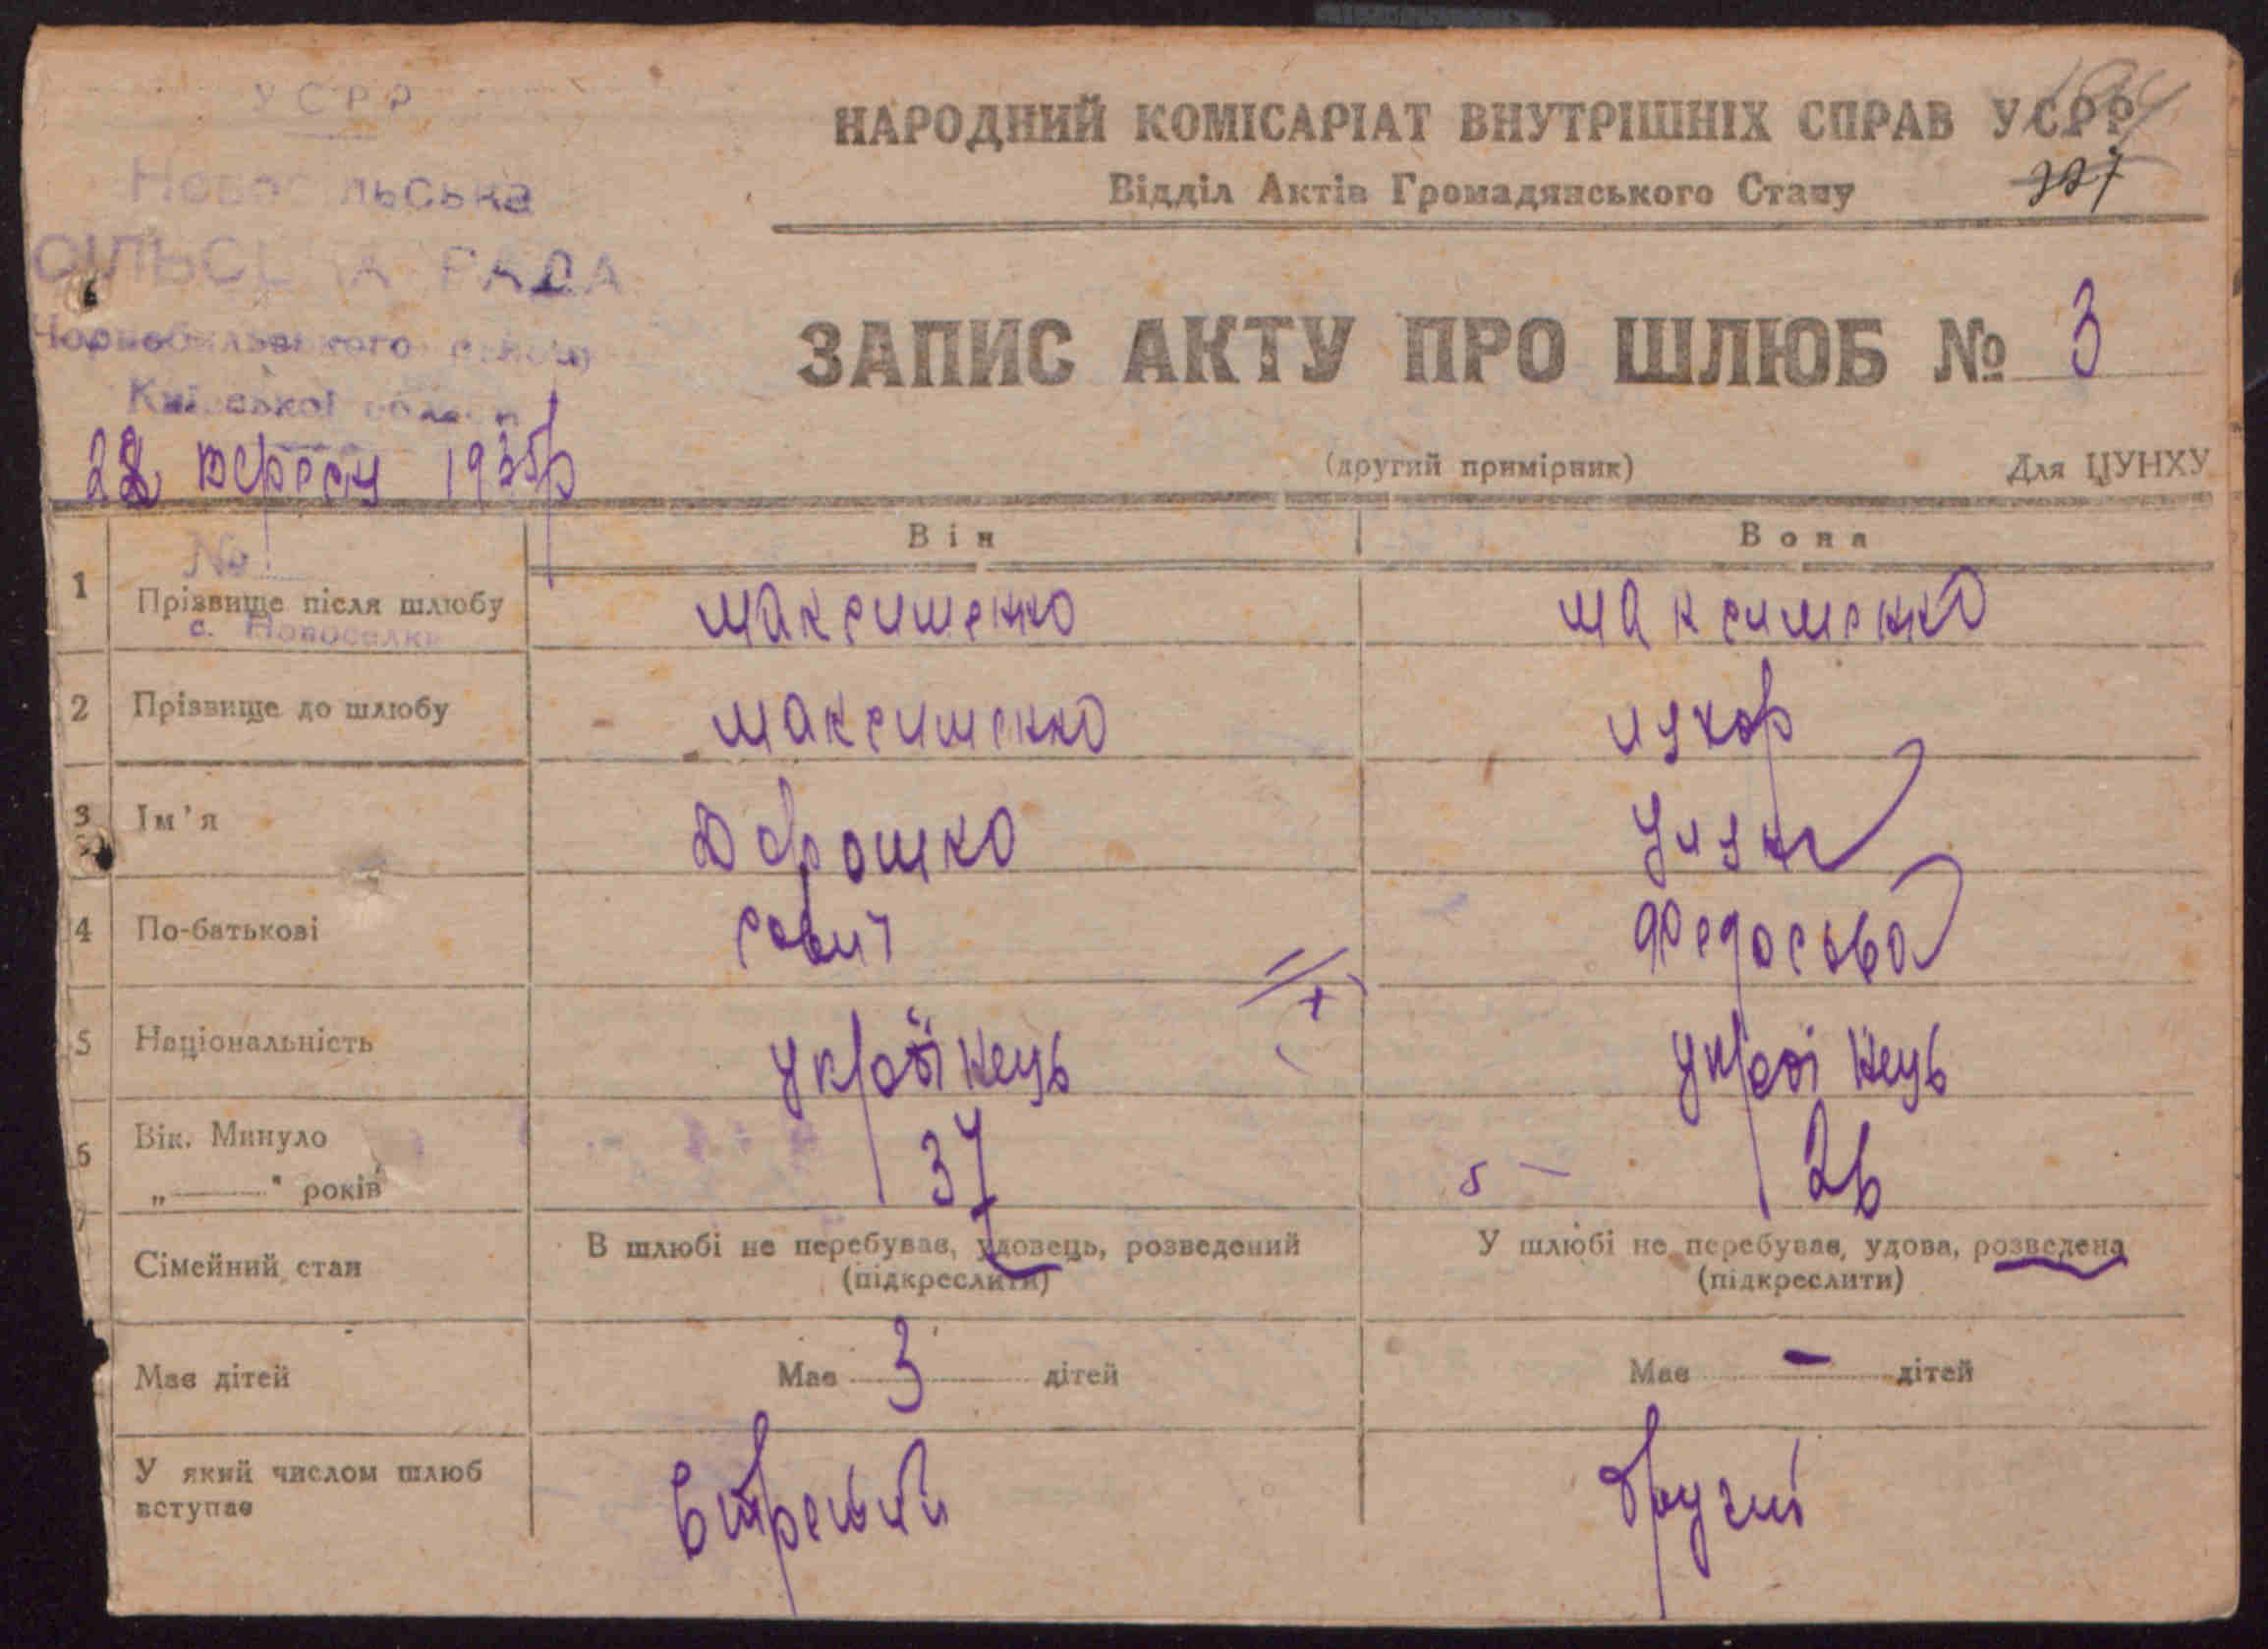 УСРР
Новосільська
СІЛЬСЬКА РАДА
Чорнобильського району
Київської області
22 вересн 1935р
№
с. Новоселки
НАРОДНИЙ КОМІСАРІАТ ВНУТРІШНІХ СПРАВ УСРР
Відділ Актів Громадянського Стану
ЗАПИС АКТУ ПРО ШЛЮБ № 3
(другий примірник) Для ЦУНХУ
Він Вона
1 Прізвище після шлюбу максименко максименко
2 Прізвище до шлюбу максименко
3 Ім'я
4 По-батькові Федосова
5 Національність українець українець
6 Вік. Минуло
„———" років 37 26
Сімейний стан В шлюбі не перебував, удовець, розведений У шлюбі не перебував, удова, розведена
(підкреслити) (підкреслити)
Має дітей Має 3 дітей Має - дітей
У який числом шлюб
вступає втретий другий